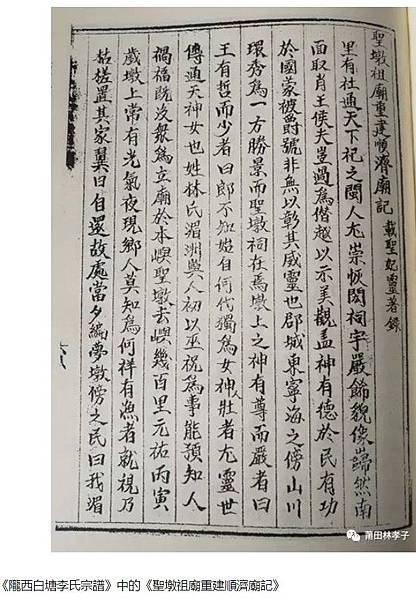 聖墩祖廟重建順濟廟記 載聖妃靈著錄
里有社通天下祀之閩人尤崇恢閎祠宇嚴餙貌像巋然南
面取肖王侯夫豈過爲僭越以示美觀盖神有德於民有功
於國蒙被爵號非無以彰其威靈也郡城東寧海之傍山川
環秀爲一方勝景而聖墩祠在焉墩上之神有尊而嚴者曰
王有哲而少者曰郎不知始自何代獨爲女神壯者尤靈世
傳通天神女也姓林氏湄洲嶼人初以巫祝爲事能預知人
禍福既沒衆爲立廟於本嶼聖墩去嶼幾百里元祐丙寅
歲墩上常有光氣夜現鄉人莫知爲何祥有漁者就視乃
枯槎置其家翼日自還故處當夕編夢墩傍之民曰我湄
莆田林孝子
《隴西白塘李氏宗譜》中的《聖墩祖廟重建順濟廟記》